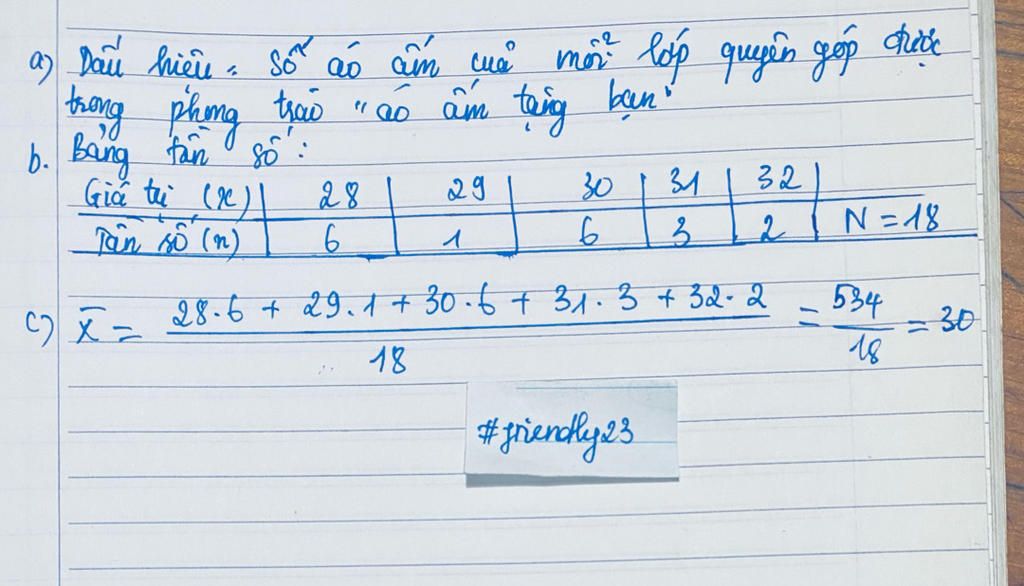 a) Dấu hiệu: Số áo ấm cuả mỗi lớp quyên góp được
trong phong trào "áo ấm tặng bạn"
b. Bảng tần số:
Giá trị (x) 28 29 30 31 32
Tần số (n) 6 1 6 3 2 N = 18
c) X̄ = 28.6 + 29.1 + 30.6 + 31.3 + 32.2 / 18 = 534 / 18 = 30
#friendly23